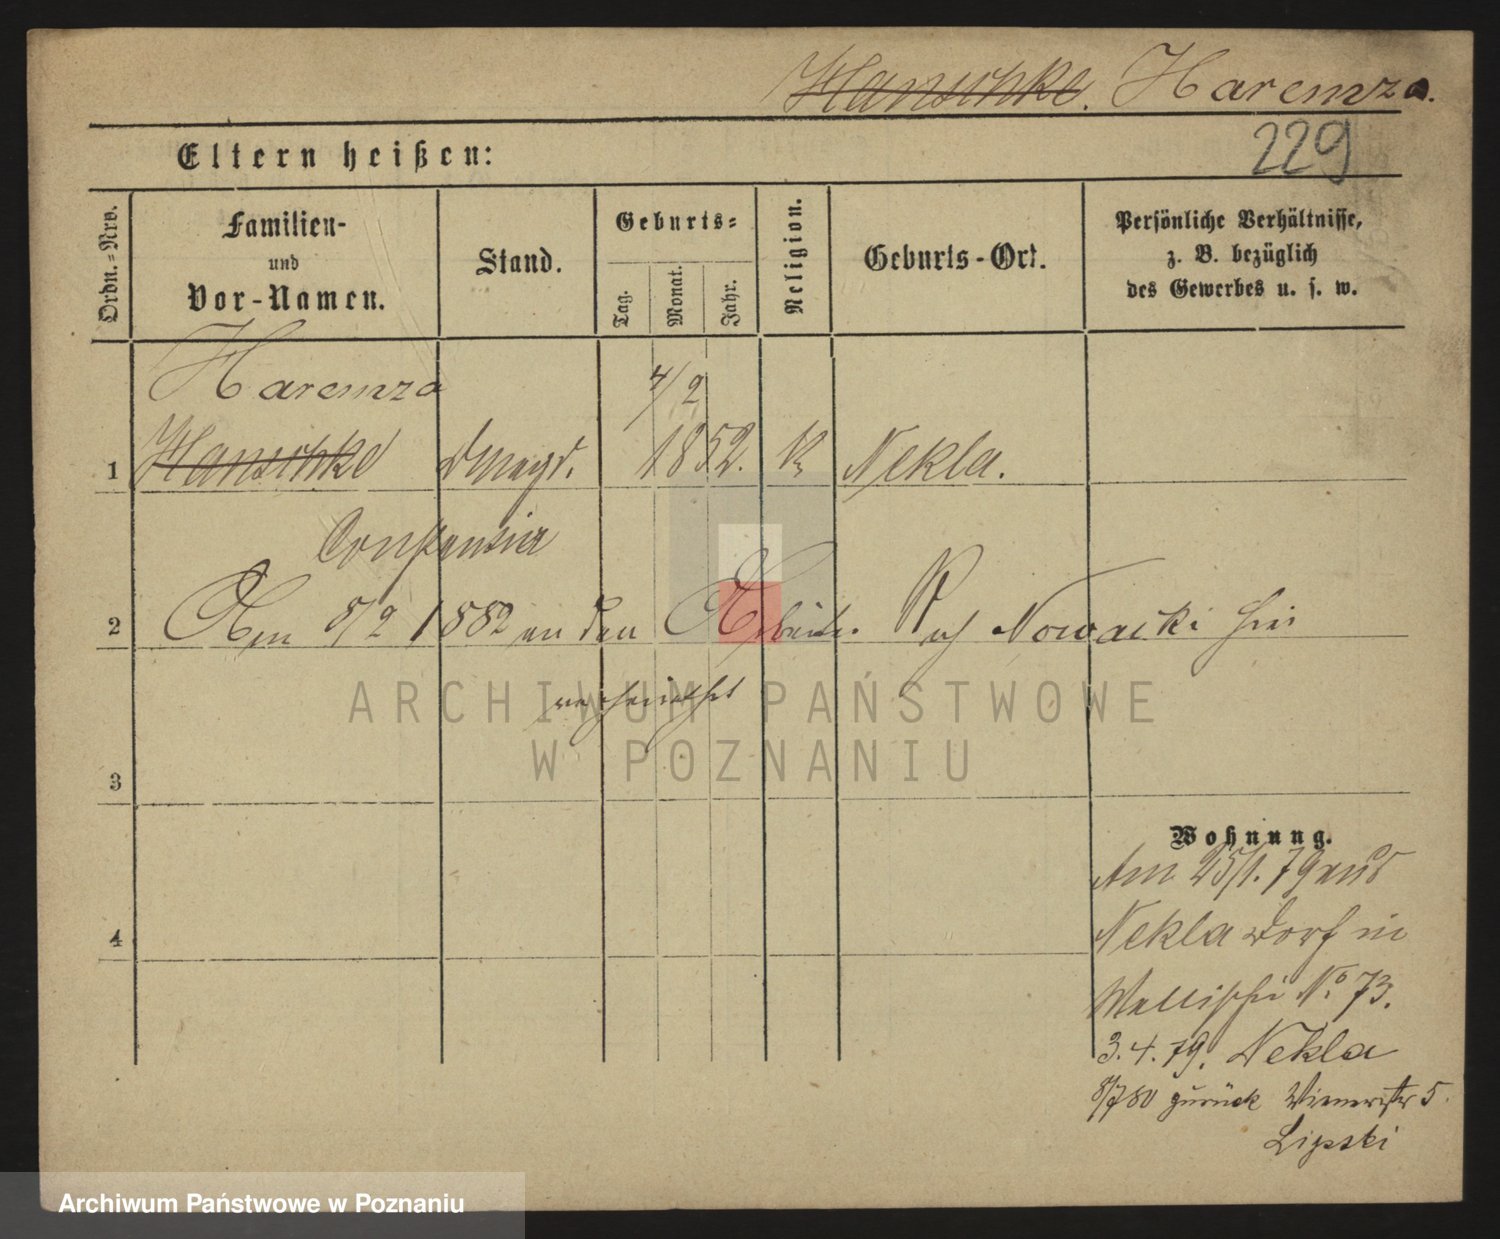 Hanschke. Haremza.
229
Eltern heißen:
Ordn.-Nro.
Familien-
und
Vor-Namen.
Stand.
Geburts-
Tag.
Monat.
Jahr.
Religion.
Geburts-Ort.
Persönliche Verhältnisse,
z. B. bezüglich
des Gewerbes u. s. w.
Haremza
4/2
1 Hanschke Dmagd. 1852. k Nekla.
Constantia
2 Am 8/2 1882 an den Arbeiter Nowacki hier
verheirathet
3
4
Wohnung.
Am 25/1. 79 aus
Nekla Dorf in
Wallischei No 73.
3.4.79. Nekla
8/7 80 zurück Wienerstr 5.
Lipski
ARCHIWUM PAŃSTWOWE
W POZNANIU
Archiwum Państwowe w Poznaniu